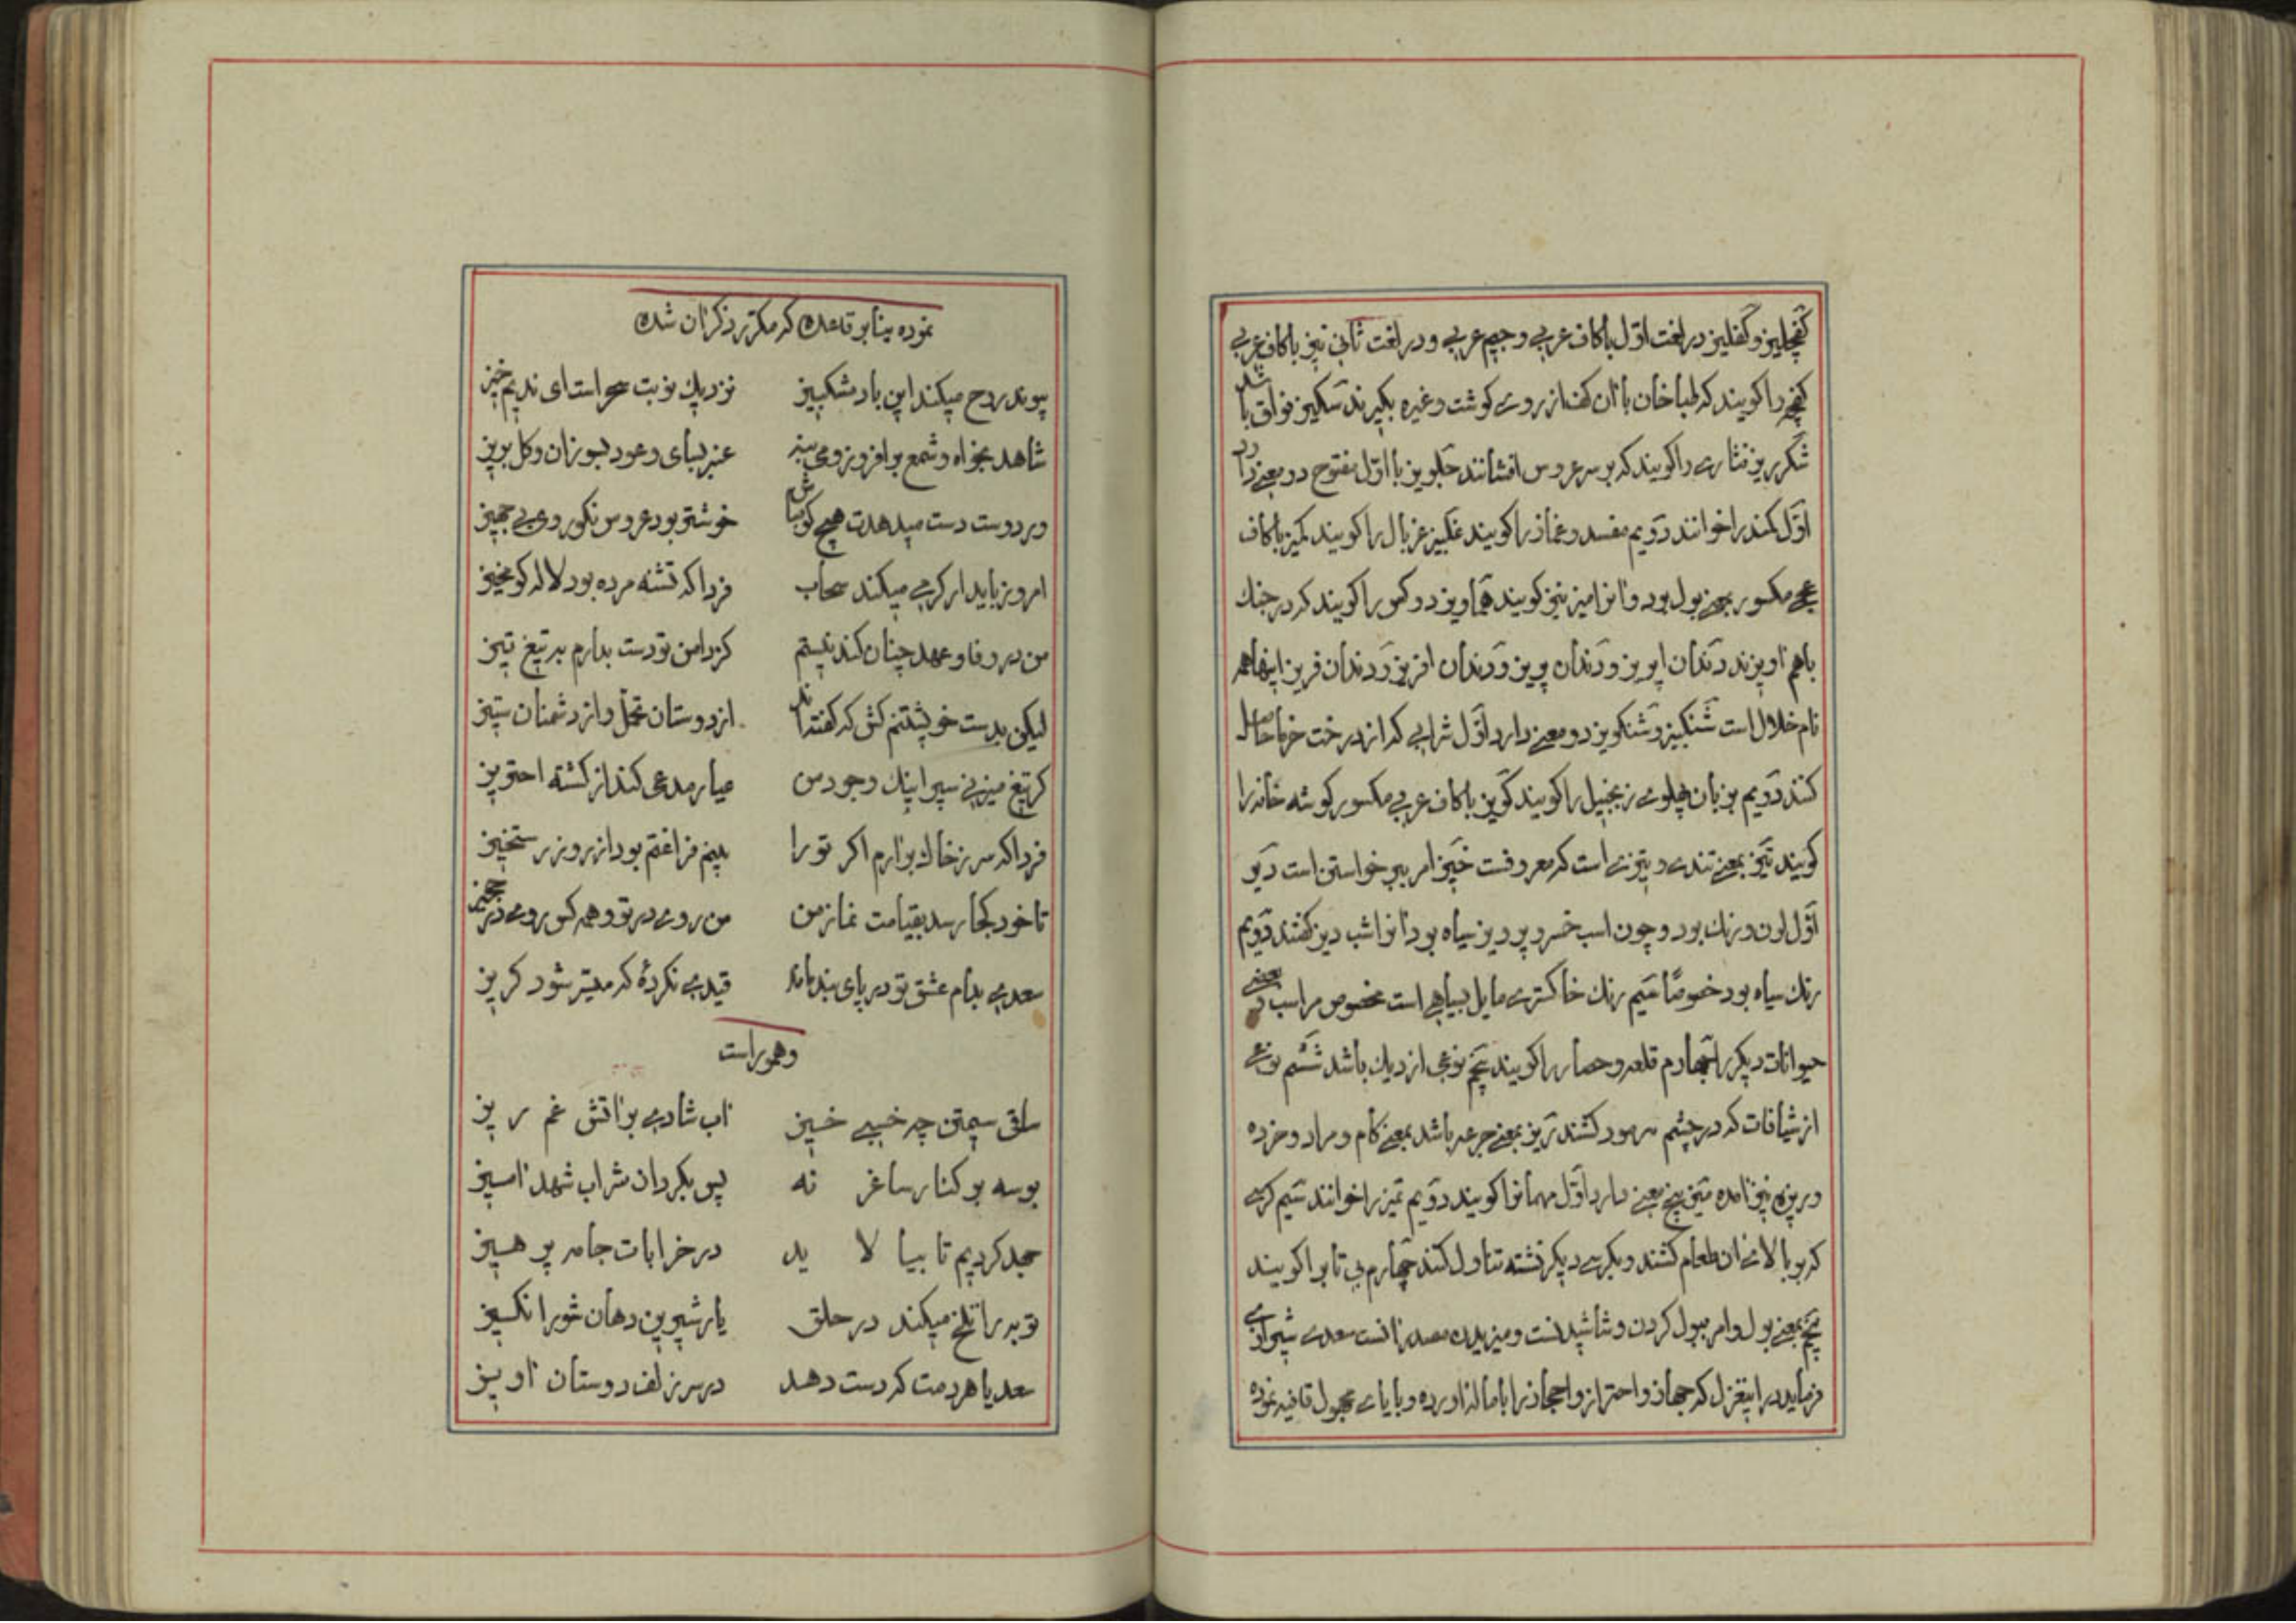 کفچلیز و کفلیز در لغت اول باکاف عربی و جیم عربی و در لغت ثانی نیز باکاف عربی
کفچه را کویند که طباخان باان کف از روی کوشت و غیره بکیرند سکیز فواق باشد
شکرریز نثاری را کویند که بر سر عروس افشانند جلویز با اول مفتوح دو معنی دارد
اول کمند را خوانند دویم مفسد و غماز را کویند غلبیز غربال را کویند کمیز باکاف
عجمی مکسور بمعنی بول بود و انرا میز نیز کویند هماویز دو کس را کویند که در جنك
باهم اویزند دندان اپریز و دندان پریز و دندان افریز و دندان فریز اینها همه
نام خلال است شنکبیز و شنکویز دو معنی دارد اول شرابی که از درخت خرما حاصل
کنند دویم بزبان پهلوی زنجبیل را کویند کویز باکاف عربی مکسور کوشه خانه را
کویند تیز بمعنی تندی و تیزی است که معروفست خیز امر بر خواستن است دیز
اول لون و رنك بود و چون اسب خسرو پرویز سیاه بود انرا شب دیز کفتند دویم
رنك سیاه بود خصوصًا سیم رنك خاکستری مایل بسیاهی است مخصوص مر اسب و بعضی
حیوانات دیکر را چهارم قلعه و حصار را کویند پنجم نوعی از دیك باشد ششم نوعی
از شیافات که در چشم مرمود کشند ریز بمعنی جرعه باشد بمعنی کام و مراد و خرده
و ریزه نیز امده میز پنج معنی دارد اول مهمانرا کویند دویم تمیز را خوانند سیم کرسی
که بر بالای ان طعام کشند و بکرسی دیکر نشسته تناول کنند چهارم بی تابرا کویند
پنجم بمعنی بول و امر ببول کردن و شاشیدنست و میزیدن مصدر انست سعدی شیرازی
فرماید در اینغزل که جهاز و احتراز و احجاز را باماله اورده و با یای مجهول قافیه نموده
نموده بنابر قاعده که مکرر ذکر ان شده
پیوند روح میکند این باد مشکبیز نزدیك نوبت سحر است ای ندیم خیز
شاهد بخواه و شمع برافروز و می بنه عنبر بسای و عود بسوزان و کل بریز
ور دوست دست میدهدت هیچ کو مباش خوشتر بود عروس نکوروی بی جهیز
امروز باید ار کرمی میکند سحاب فردا که تشنه مرده بود لاله کو مخیز
من در وفا و عهد چنان کند نیستم کز دامن تو دست بدارم بر تیغ تیز
لیکن بدست خویشتنم کش که کفته اند از دوستان تحمل و از دشمنان ستیز
کر تیغ میزنی سپر اینك وجود من عیار مدعی کند از کشته احتریز
فردا که سر ز خاك برارم اکر تو را بینم فراغتم بود از روز رستخیز
تا خود کجا رسد بقیامت نماز من من روی در تو و همه کس روی در حجیز
سعدی بدام عشق تو در پای بند ماند قیدی نکردۀ که میسر شود کریز
وهموراست
ساقی سیمتن چه خسبی خیز اب شادی بر اتش غم ریز
بوسه بر کنار ساغر نه پس بکردان شراب شهد امیز
جهد کردیم تا بیالاید در خرابات جامه پرهیز
توبه را تلخ میکند در حلق یار شیرین دهان شورانکیز
سعدیا هر دمت که دست دهد در سر زلف دوستان اویز